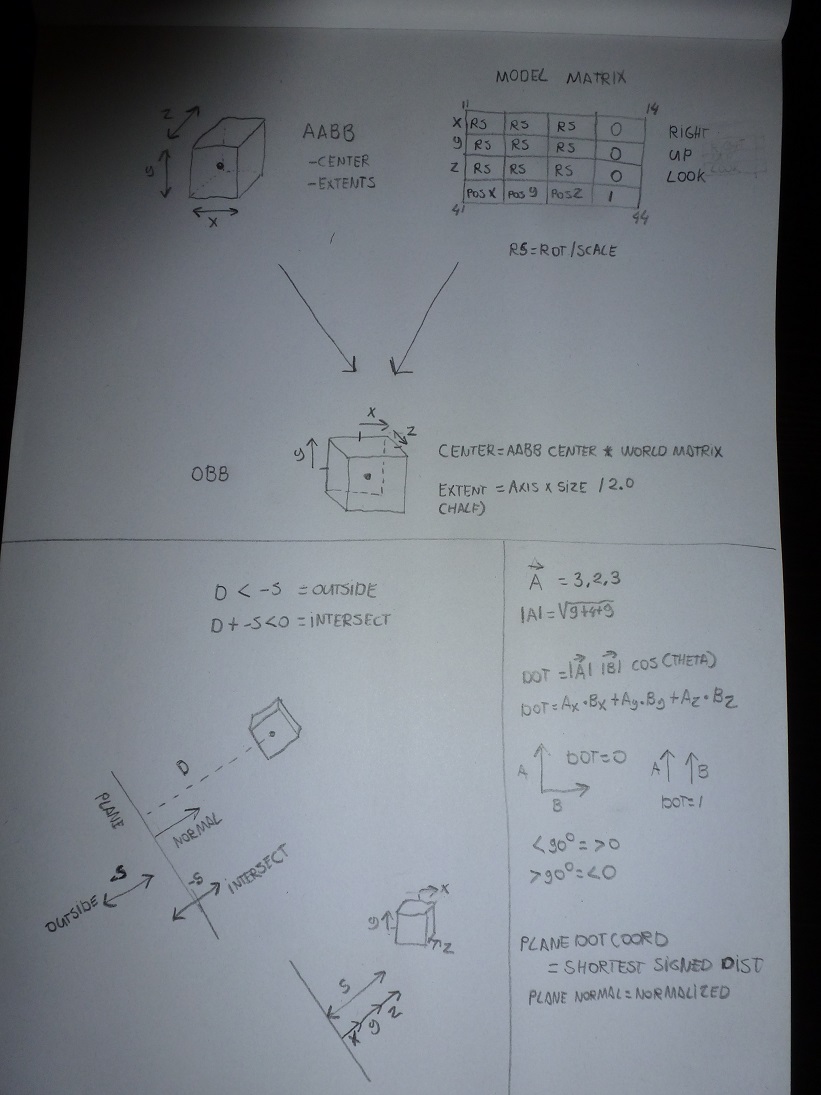 MODEL MATRIX
11 14
X RS RS RS 0 RIGHT
Y RS RS RS 0 UP
Z RS RS RS 0 LOOK
POSX POSY POSZ 1
41 44
RS=ROT/SCALE
Z
Y
X
AABB
-CENTER
-EXTENTS
OBB
X
Y
Z
CENTER=AABB CENTER * WORLD MATRIX
EXTENT = AXIS X SIZE / 2.0
(HALF)
D < -S = OUTSIDE
D + -S<0 = INTERSECT
D
PLANE
NORMAL
-S
OUTSIDE
-S
INTERSECT
X
Y
Z
S
X Y Z
A = 3,2,3
|A| = √9+4+9
DOT = |A| |B| COS(THETA)
DOT = Ax·Bx+Ay·By+Az·Bz
A DOT=0
B
A B
DOT=1
<90°=>0
>90°=<0
PLANE DOT COORD
= SHORTEST SIGNED DIST
PLANE NORMAL = NORMALIZED